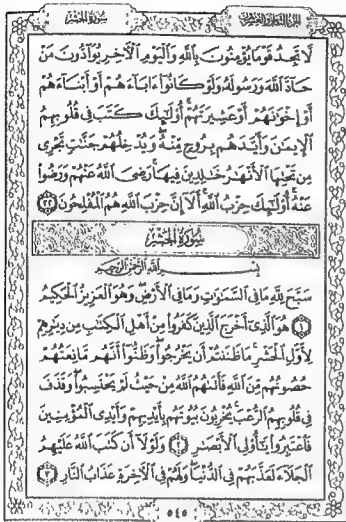 الجزء الثامن والعشرون
سورة الحشر
لَّا تَجِدُ قَوْمًا يُؤْمِنُونَ بِٱللَّهِ وَٱلْيَوْمِ ٱلْأَخِرِ يُوَآدُّونَ مَنْ
حَآدَّ ٱللَّهَ وَرَسُولَهُۥ وَلَوْ كَانُوٓا۟ ءَابَآءَهُمْ أَوْ أَبْنَآءَهُمْ
أَوْ إِخْوَٰنَهُمْ أَوْ عَشِيرَتَهُمْ ۚ أُو۟لَٰٓئِكَ كَتَبَ فِى قُلُوبِهِمُ
ٱلْإِيمَٰنَ وَأَيَّدَهُم بِرُوحٍ مِّنْهُ ۖ وَيُدْخِلُهُمْ جَنَّٰتٍ تَجْرِى
مِن تَحْتِهَا ٱلْأَنْهَٰرُ خَٰلِدِينَ فِيهَا ۚ رَضِىَ ٱللَّهُ عَنْهُمْ وَرَضُوا۟
عَنْهُ ۚ أُو۟لَٰٓئِكَ حِزْبُ ٱللَّهِ ۚ أَلَآ إِنَّ حِزْبَ ٱللَّهِ هُمُ ٱلْمُفْلِحُونَ ٢٢
سورة الحشر
بسم الله الرحمن الرحيم
سَبَّحَ لِلَّهِ مَا فِى ٱلسَّمَٰوَٰتِ وَمَا فِى ٱلْأَرْضِ ۖ وَهُوَ ٱلْعَزِيزُ ٱلْحَكِيمُ
١ هُوَ ٱلَّذِىٓ أَخْرَجَ ٱلَّذِينَ كَفَرُوا۟ مِنْ أَهْلِ ٱلْكِتَٰبِ مِن دِيَٰرِهِمْ
لِأَوَّلِ ٱلْحَشْرِ ۚ مَا ظَنَنتُمْ أَن يَخْرُجُوا۟ ۖ وَظَنُّوٓا۟ أَنَّهُم مَّانِعَتُهُمْ
حُصُونُهُم مِّنَ ٱللَّهِ فَأَتَىٰهُمُ ٱللَّهُ مِنْ حَيْثُ لَمْ يَحْتَسِبُوا۟ ۖ وَقَذَفَ
فِى قُلُوبِهِمُ ٱلرُّعْبَ ۚ يُخْرِبُونَ بُيُوتَهُم بِأَيْدِيهِمْ وَأَيْدِى ٱلْمُؤْمِنِينَ
فَٱعْتَبِرُوا۟ يَٰٓأُو۟لِى ٱلْأَبْصَٰرِ ٢ وَلَوْلَآ أَن كَتَبَ ٱللَّهُ عَلَيْهِمُ
ٱلْجَلَآءَ لَعَذَّبَهُمْ فِى ٱلدُّنْيَا ۖ وَلَهُمْ فِى ٱلْأَخِرَةِ عَذَابُ ٱلنَّارِ ٣
٥٤٥